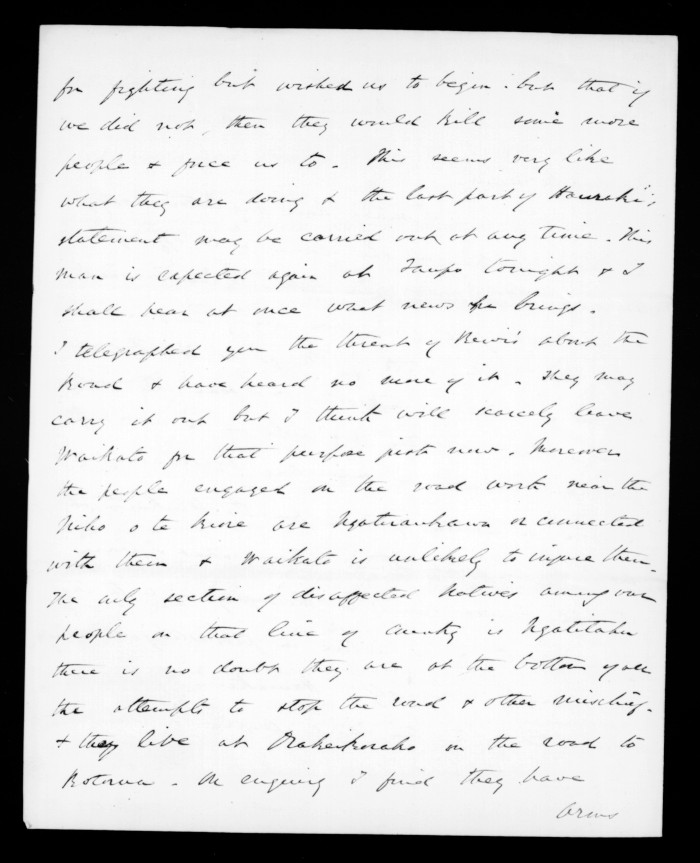 for fighting but wished us to begin. but that if
we did not, then they would kill some more
people & force us to. This seems very like
what they are doing & the last part of Hauraki's
statement may be carried out at any time. This
man is expected again at Taupo tonight & I
shall hear at once what news he brings.
I telegraphed you the threat of Rewi's about the
Road & have heard no more of it. They may
carry it out but I think will scarcely leave
Waikato for that purpose just now. Moreover
the people engaged on the road work near the
Niho o te Kiore are Ngatiraukawa or connected
with them & Waikato is unlikely to injure them.
The only section of disaffected Natives among our
people on that line of country is Ngatitahu
there is no doubt they are at the bottom of all
the attempts to stop the road & other mischief.
& they live at Orakeikorako on the road to
Rotorua. On enquiry I find they have
arms